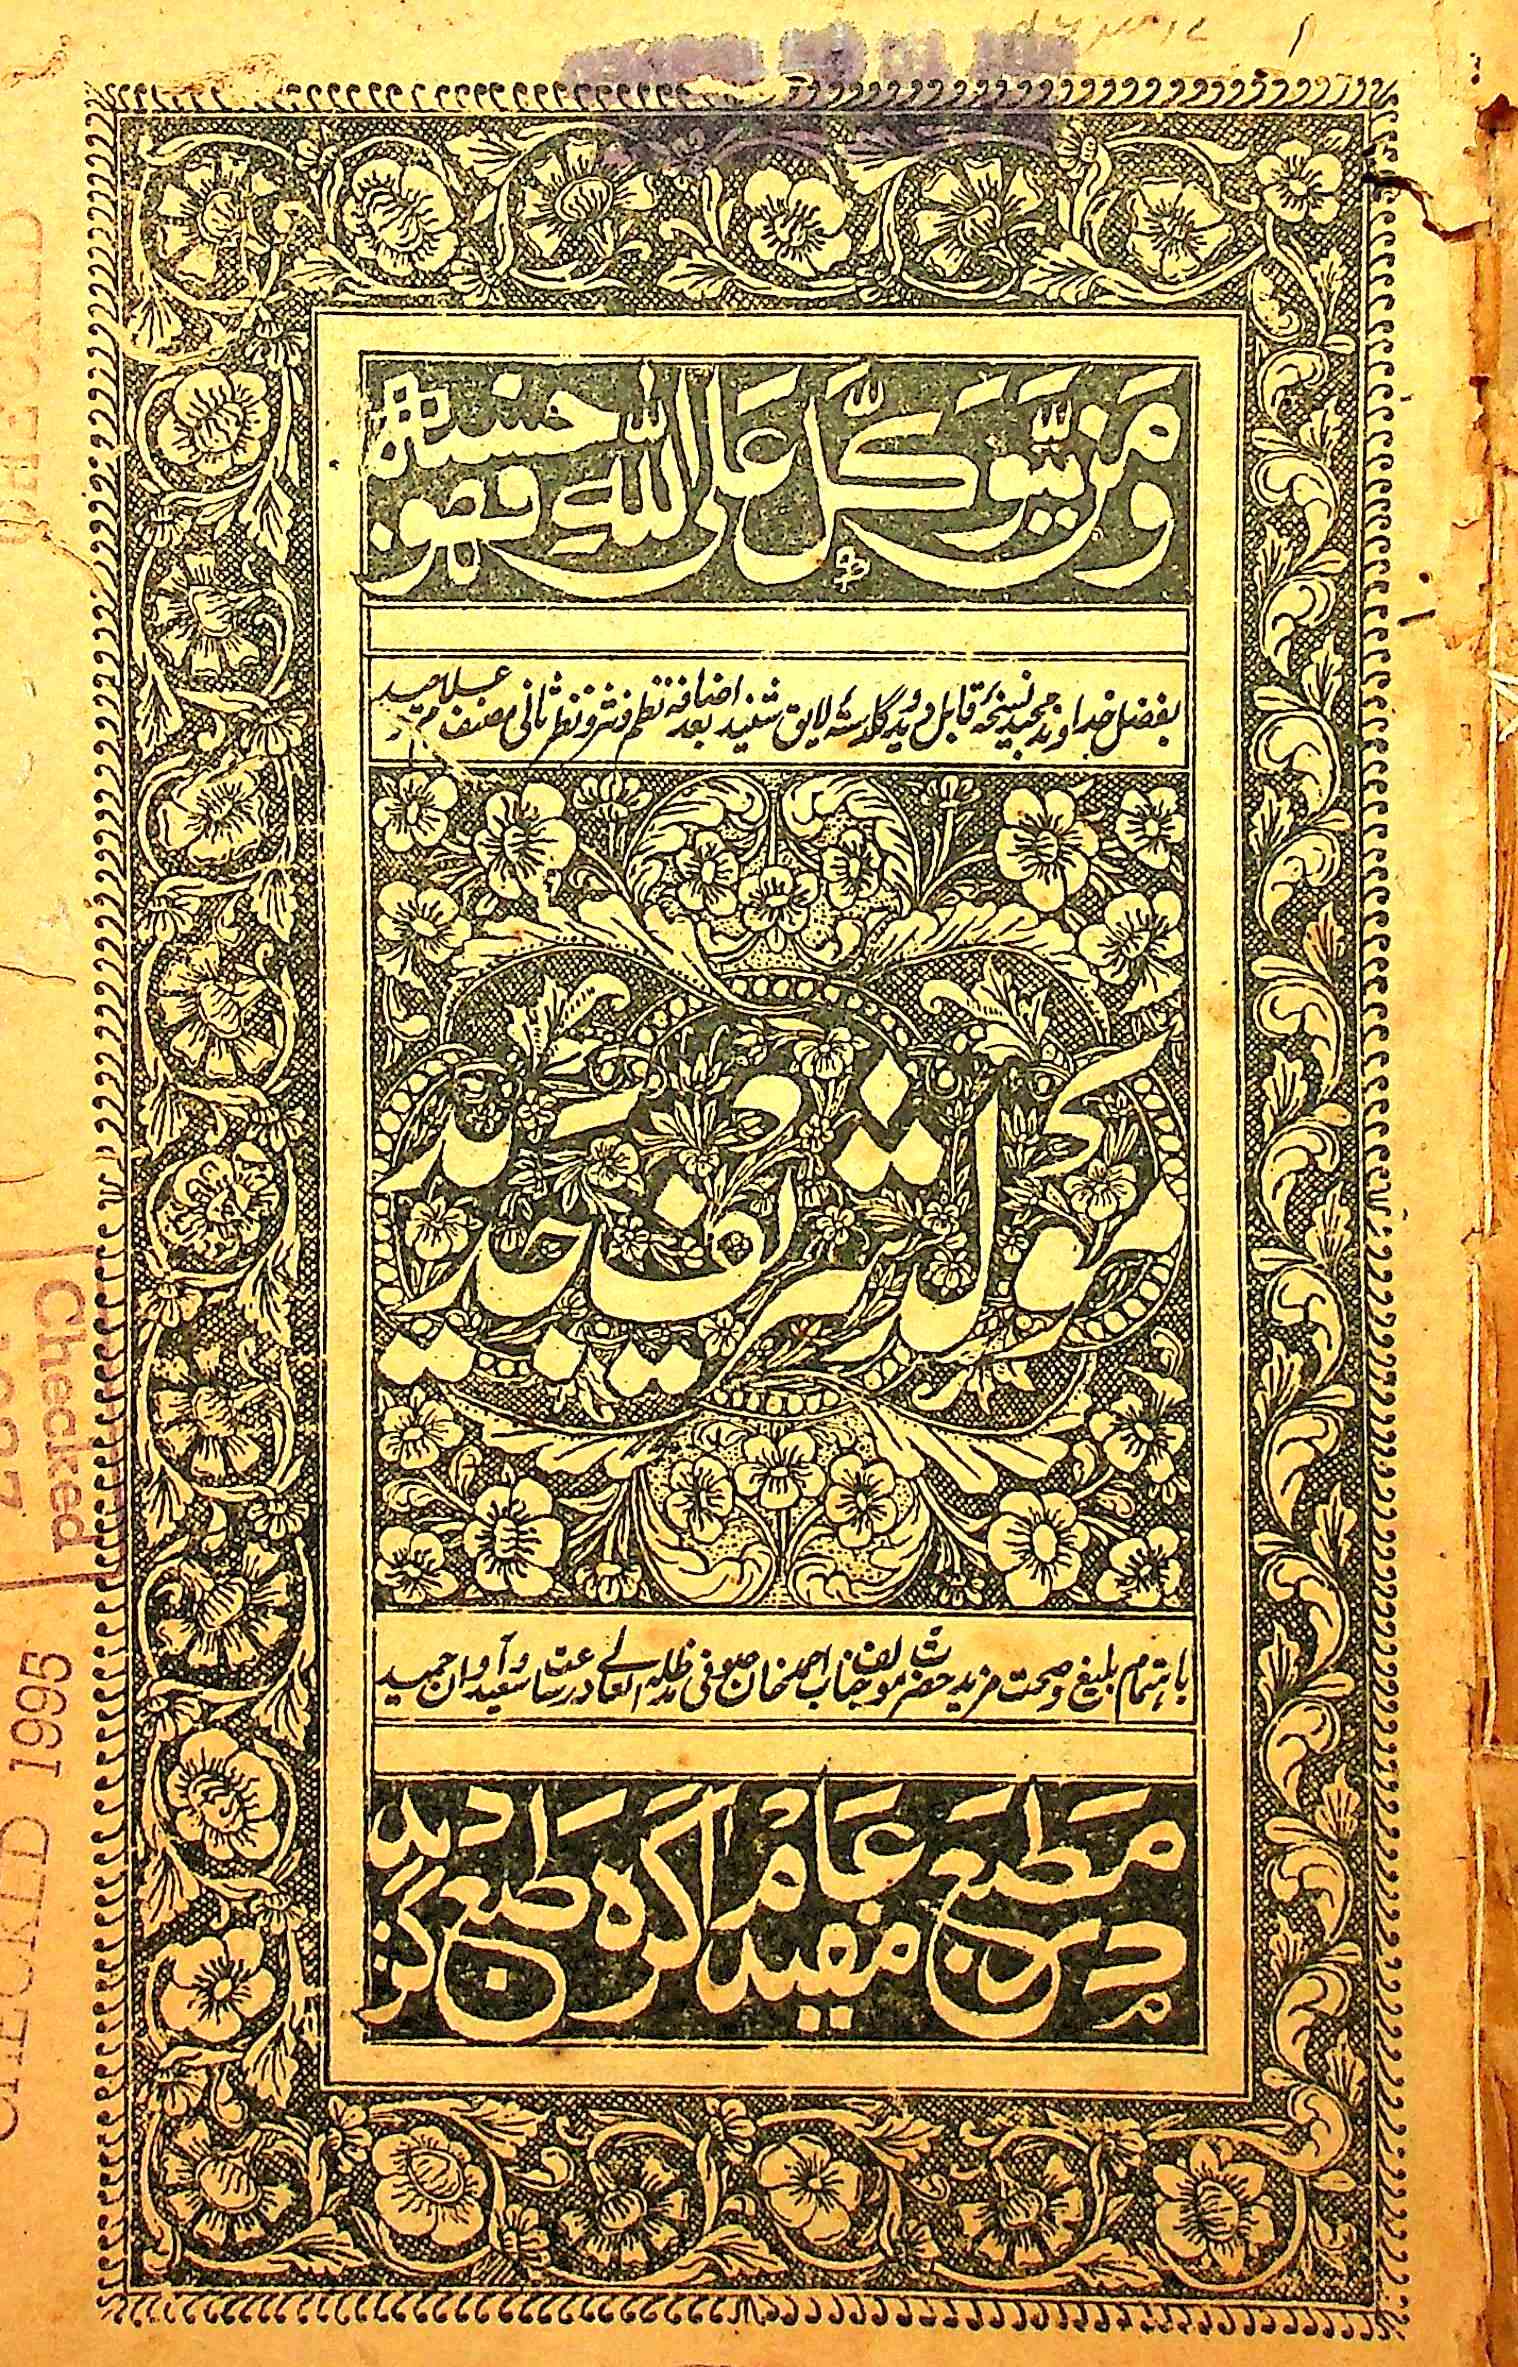 وَمَن يَّتَوَكَّل عَلَى اللّٰهِ فَهُوَ حَسْبُهٗ
بفضل خداوند مجید نسخۂ قابل دید و گلدستۂ لایق شنید بعد اضافۂ نظم و نثر و نظر ثانی مصنف
مولد شریف جدید
باہتمام بلیغ و صحت مزید حضرت مولف جناب احمد خان صوفی مد ظلہ العالی در ساعت سعید و آوان حمید
در مطبع مفید عام آگرہ طبع گردید
Checked
CHECKED 1995
CHECKED